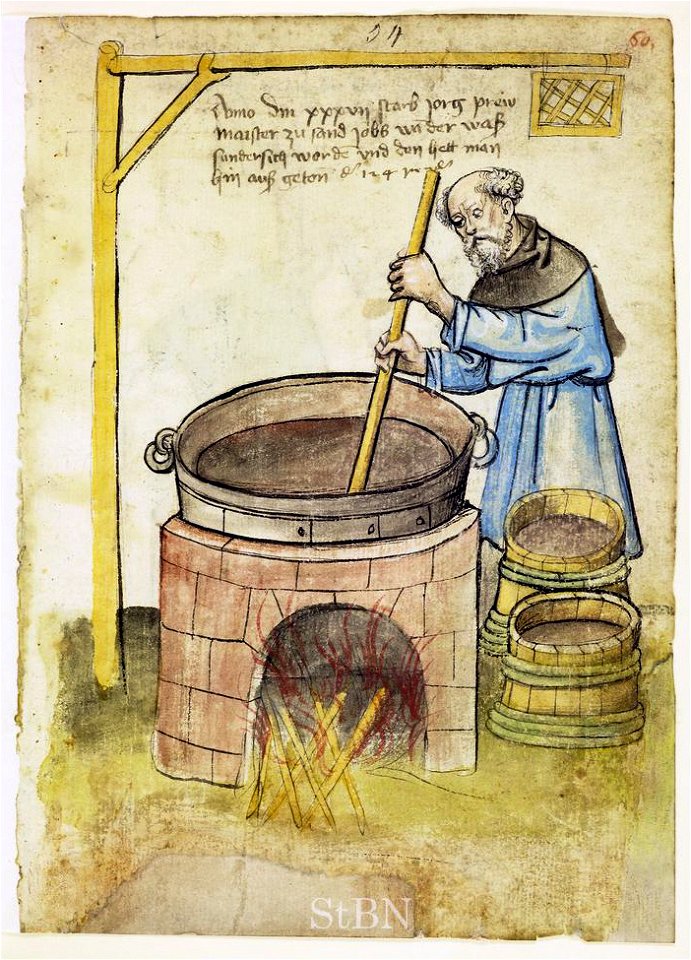 60.
Anno dm xxxvii starb jorg prew
maister zu sand jobs wā der waß
sundersich wordē vnd den hett man
hin auß geton
StBN